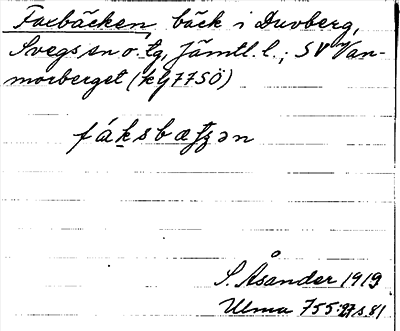 Faxbäcken, bäck i Duvberg,
Svegs sn o. tg, Jämtl. l.; SV Van-
morberget (kG7750)
fáksbætʃən
S. Åsander 1919
Ulma 755:27 s. 81